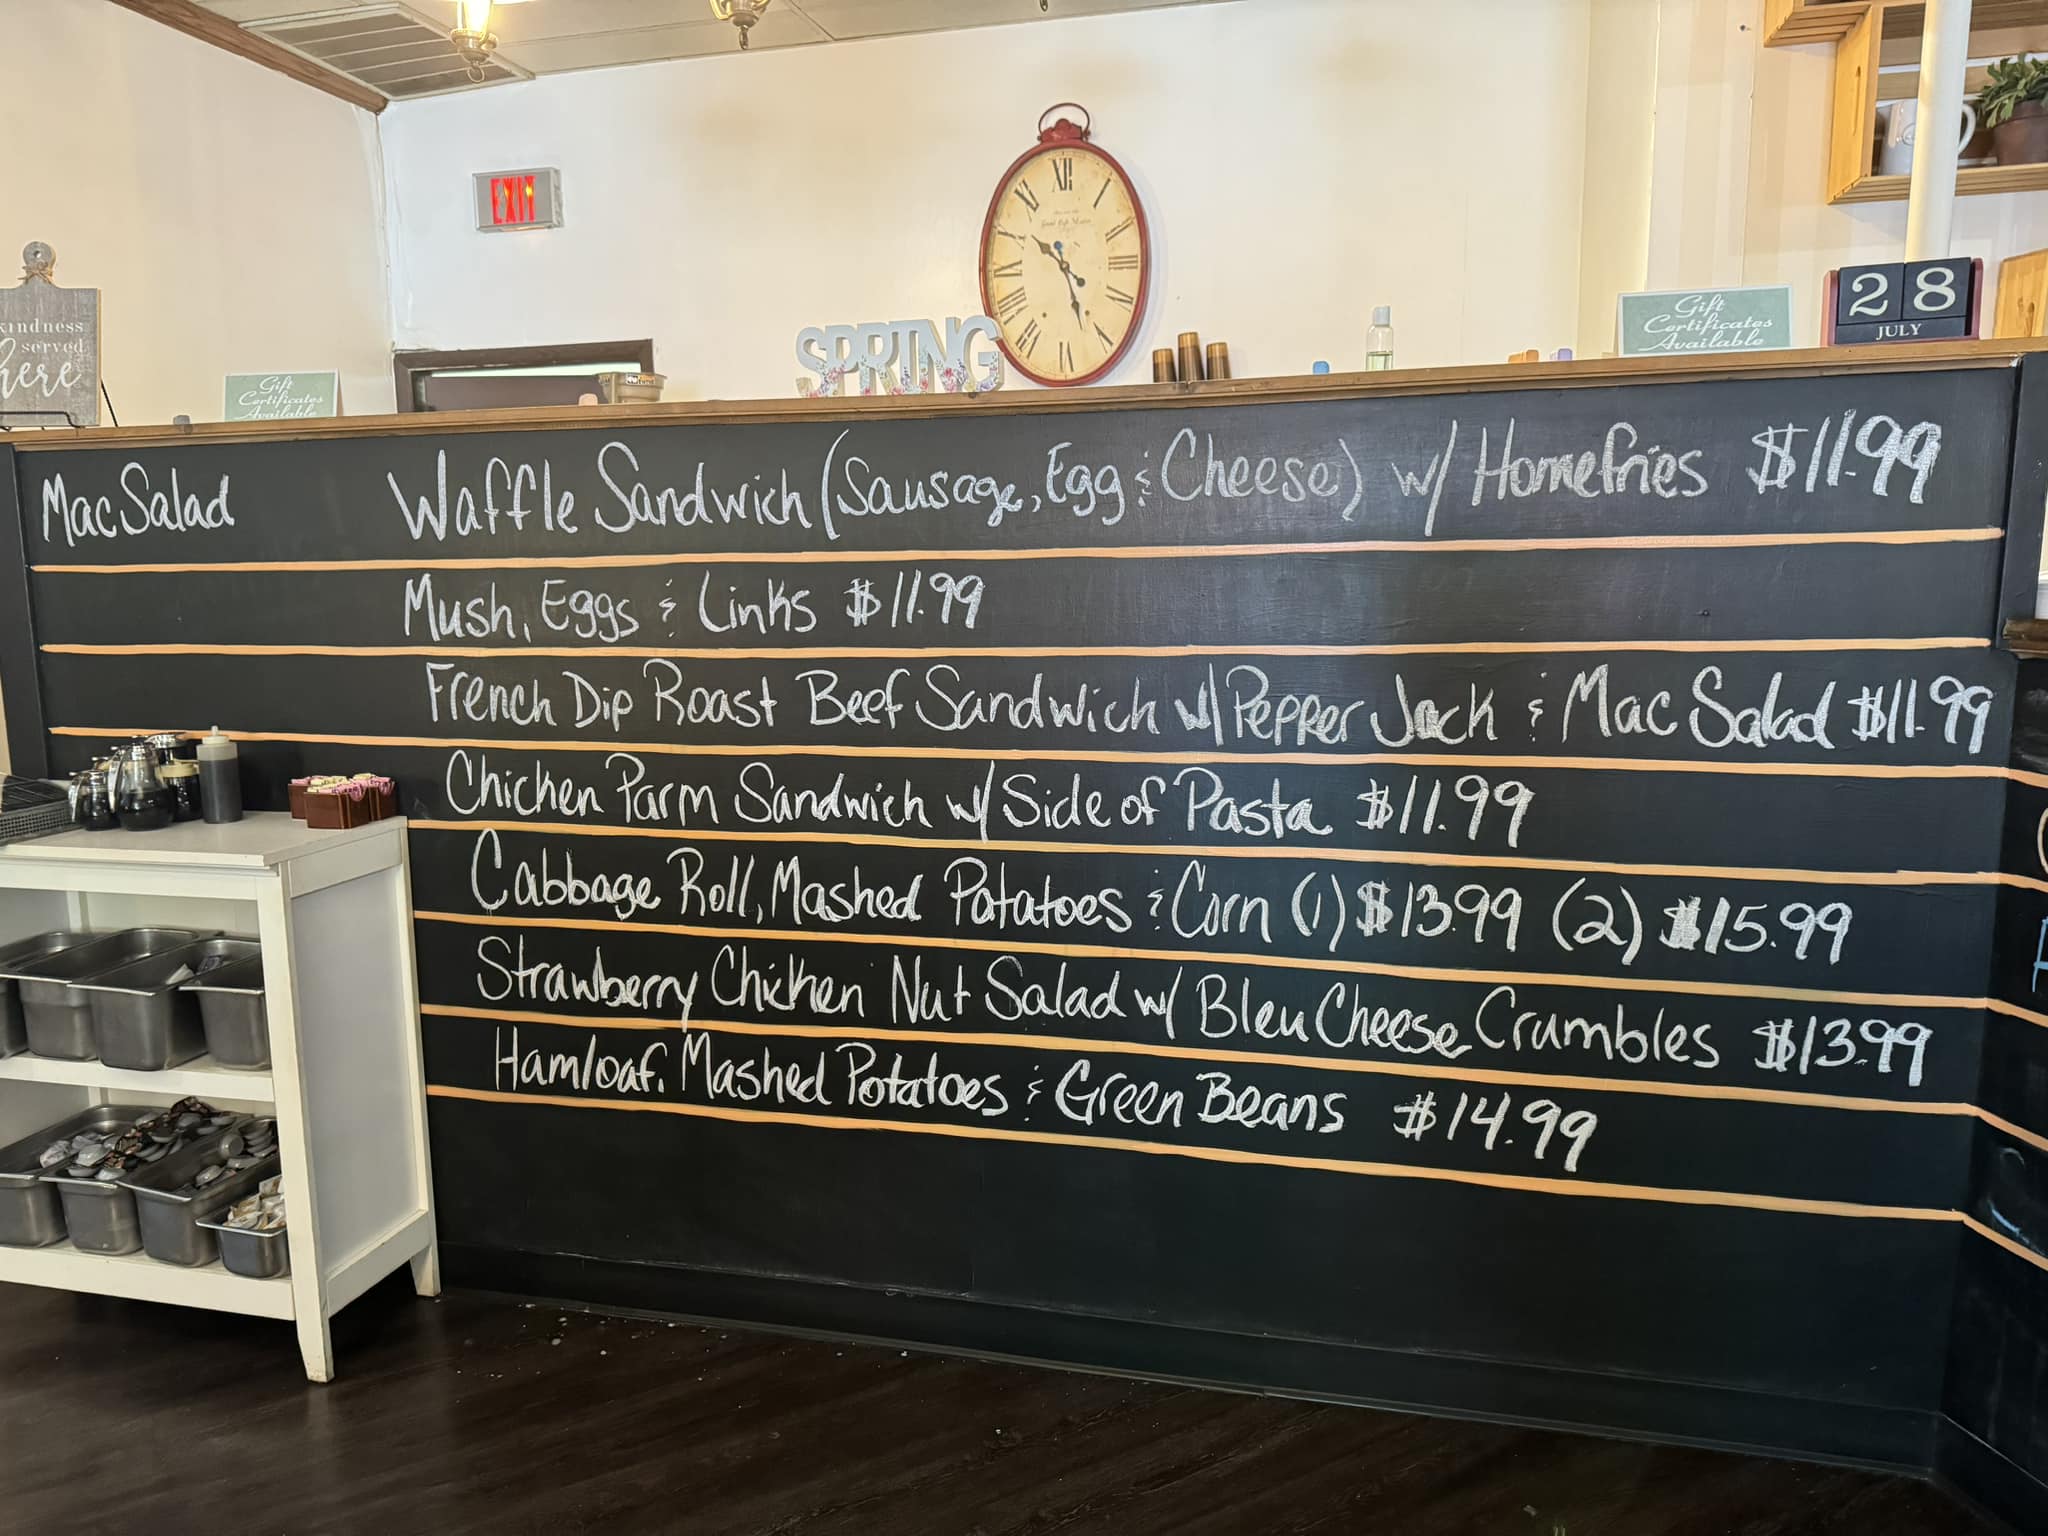 EXIT
XII
kindness
served
here
Gift
Certificates
Available
SPRING
Gift
Certificates
Available
28
JULY
Mac Salad
Waffle Sandwich (Sausage, Egg & Cheese) w/ Homefries $11.99
Mush, Eggs & Links $11.99
French Dip Roast Beef Sandwich w/ Pepper Jack & Mac Salad $11.99
Chicken Parm Sandwich w/ Side of Pasta $11.99
Cabbage Roll, Mashed Potatoes & Corn (1) $13.99 (2) $15.99
Strawberry Chicken Nut Salad w/ Bleu Cheese Crumbles $13.99
Hamloaf, Mashed Potatoes & Green Beans $14.99